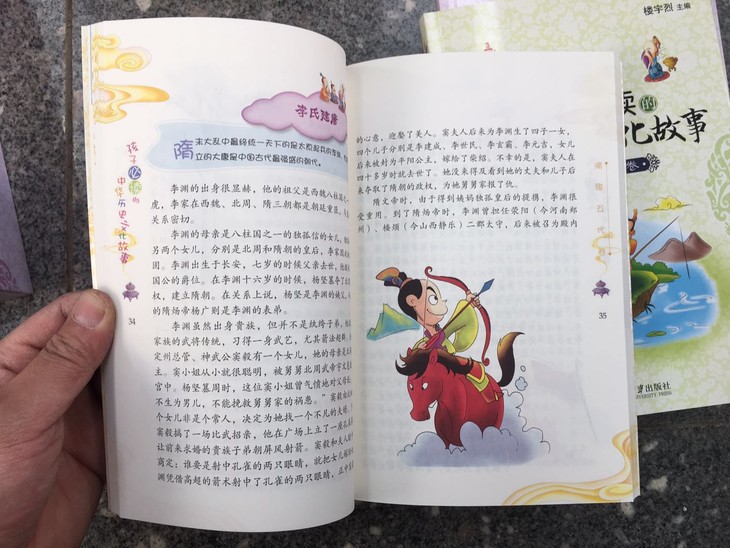 李氏建唐
隋末大乱中最终统一天下的是太原起兵的李渊,
立的大唐是中国古代最强盛的朝代。
李渊的出身很显赫,他的祖父是西魏八柱国之一
虎,李家在西魏、北周、隋三朝都是朝廷重臣,
关系密切。
李渊的母亲是八柱国之一的独孤信的女儿,
另两个女儿,分别是北周和隋朝的皇后,李家
固。李渊出生于长安,七岁的时候父亲去世,他
国公的爵位。在李渊十六岁的时候,杨坚篡夺了
权,建立隋朝。在关系上说,杨坚是李渊的姨父,
的隋炀帝杨广则是李渊的表弟。
李渊虽然出身贵族,但并不是纨绔子弟,
家族的武将传统,习得一身武艺,尤其箭法超群。
定州总管、神武公窦毅有一个女儿,她的母亲是
主。窦小姐从小就很聪明,被舅舅北周武帝宇文
宫中。杨坚篡周时,这位窦小姐曾气愤地对父母
不生为男儿,不能挽救舅舅家的祸患。”窦毅
个女儿非是个常人,决定为她找一个不凡的夫婿。
窦毅搞了一场比武招亲,他在广场上立了一座孔雀
让前来求婚的贵族子弟朝屏风射箭。窦毅和夫人
商定:谁要是射中孔雀的两只眼睛,就把女儿嫁
渊凭借高超的箭术射中了孔雀的两只眼睛,正中窦
孩子必读的
中华历史文化故事
34
的心意,迎娶了美人。窦夫人后来为李渊生了四子一女,
四个儿子分别是李建成、李世民、李玄霸、李元吉,女儿
后来被封为平阳公主,嫁给了柴绍。不幸的是,窦夫人在
四十多岁时就去世了。她没来得及看到她的丈夫和儿子后
来夺取了隋朝的政权,为她舅舅家报了仇。
隋文帝时,由于得到姨妈独孤皇后的提携,李渊很
受重用。到了隋炀帝时,李渊曾担任荥阳(今河南郑
州)、楼烦(今山西静乐)二郡太守,后来被召为殿内
隋唐五代卷
35
楼宇烈 主编
读的
化故事
卷
出版社
UNIVERSITY PRESS